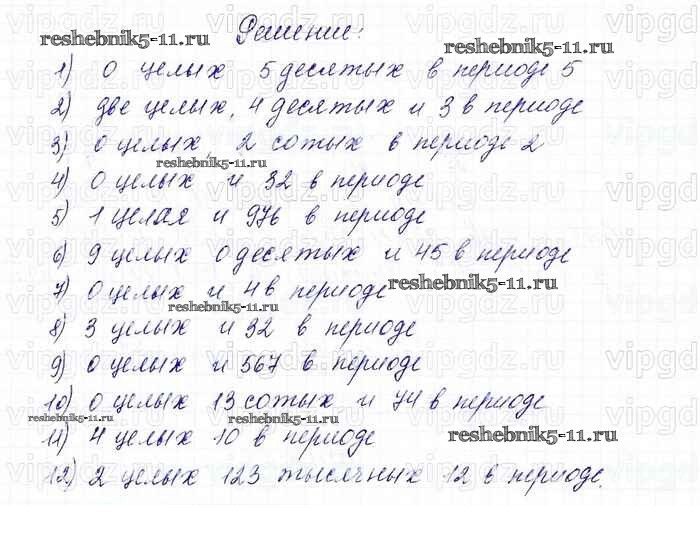 Решение:
reshebnik5-11.ru
reshebnik5-11.ru
1) 0 целых 5 десятых в периоде 5
2) две целых, 4 десятых и 3 в периоде
3) 0 целых, 2 сотых в периоде 2
reshebnik5-11.ru
4) 0 целых и 32 в периоде
5) 1 целая и 976 в периоде
6) 9 целых 0 десятых и 45 в периоде
7) 0 целых и 4 в периоде
reshebnik5-11.ru
reshebnik5-11.ru
8) 3 целых и 32 в периоде
9) 0 целых и 567 в периоде
10) 0 целых 13 сотых и 74 в периоде
reshebnik5-11.ru
11) 4 целых 10 в периоде
reshebnik5-11.ru
reshebnik5-11.ru
12) 2 целых 123 тысячных 12 в периоде.